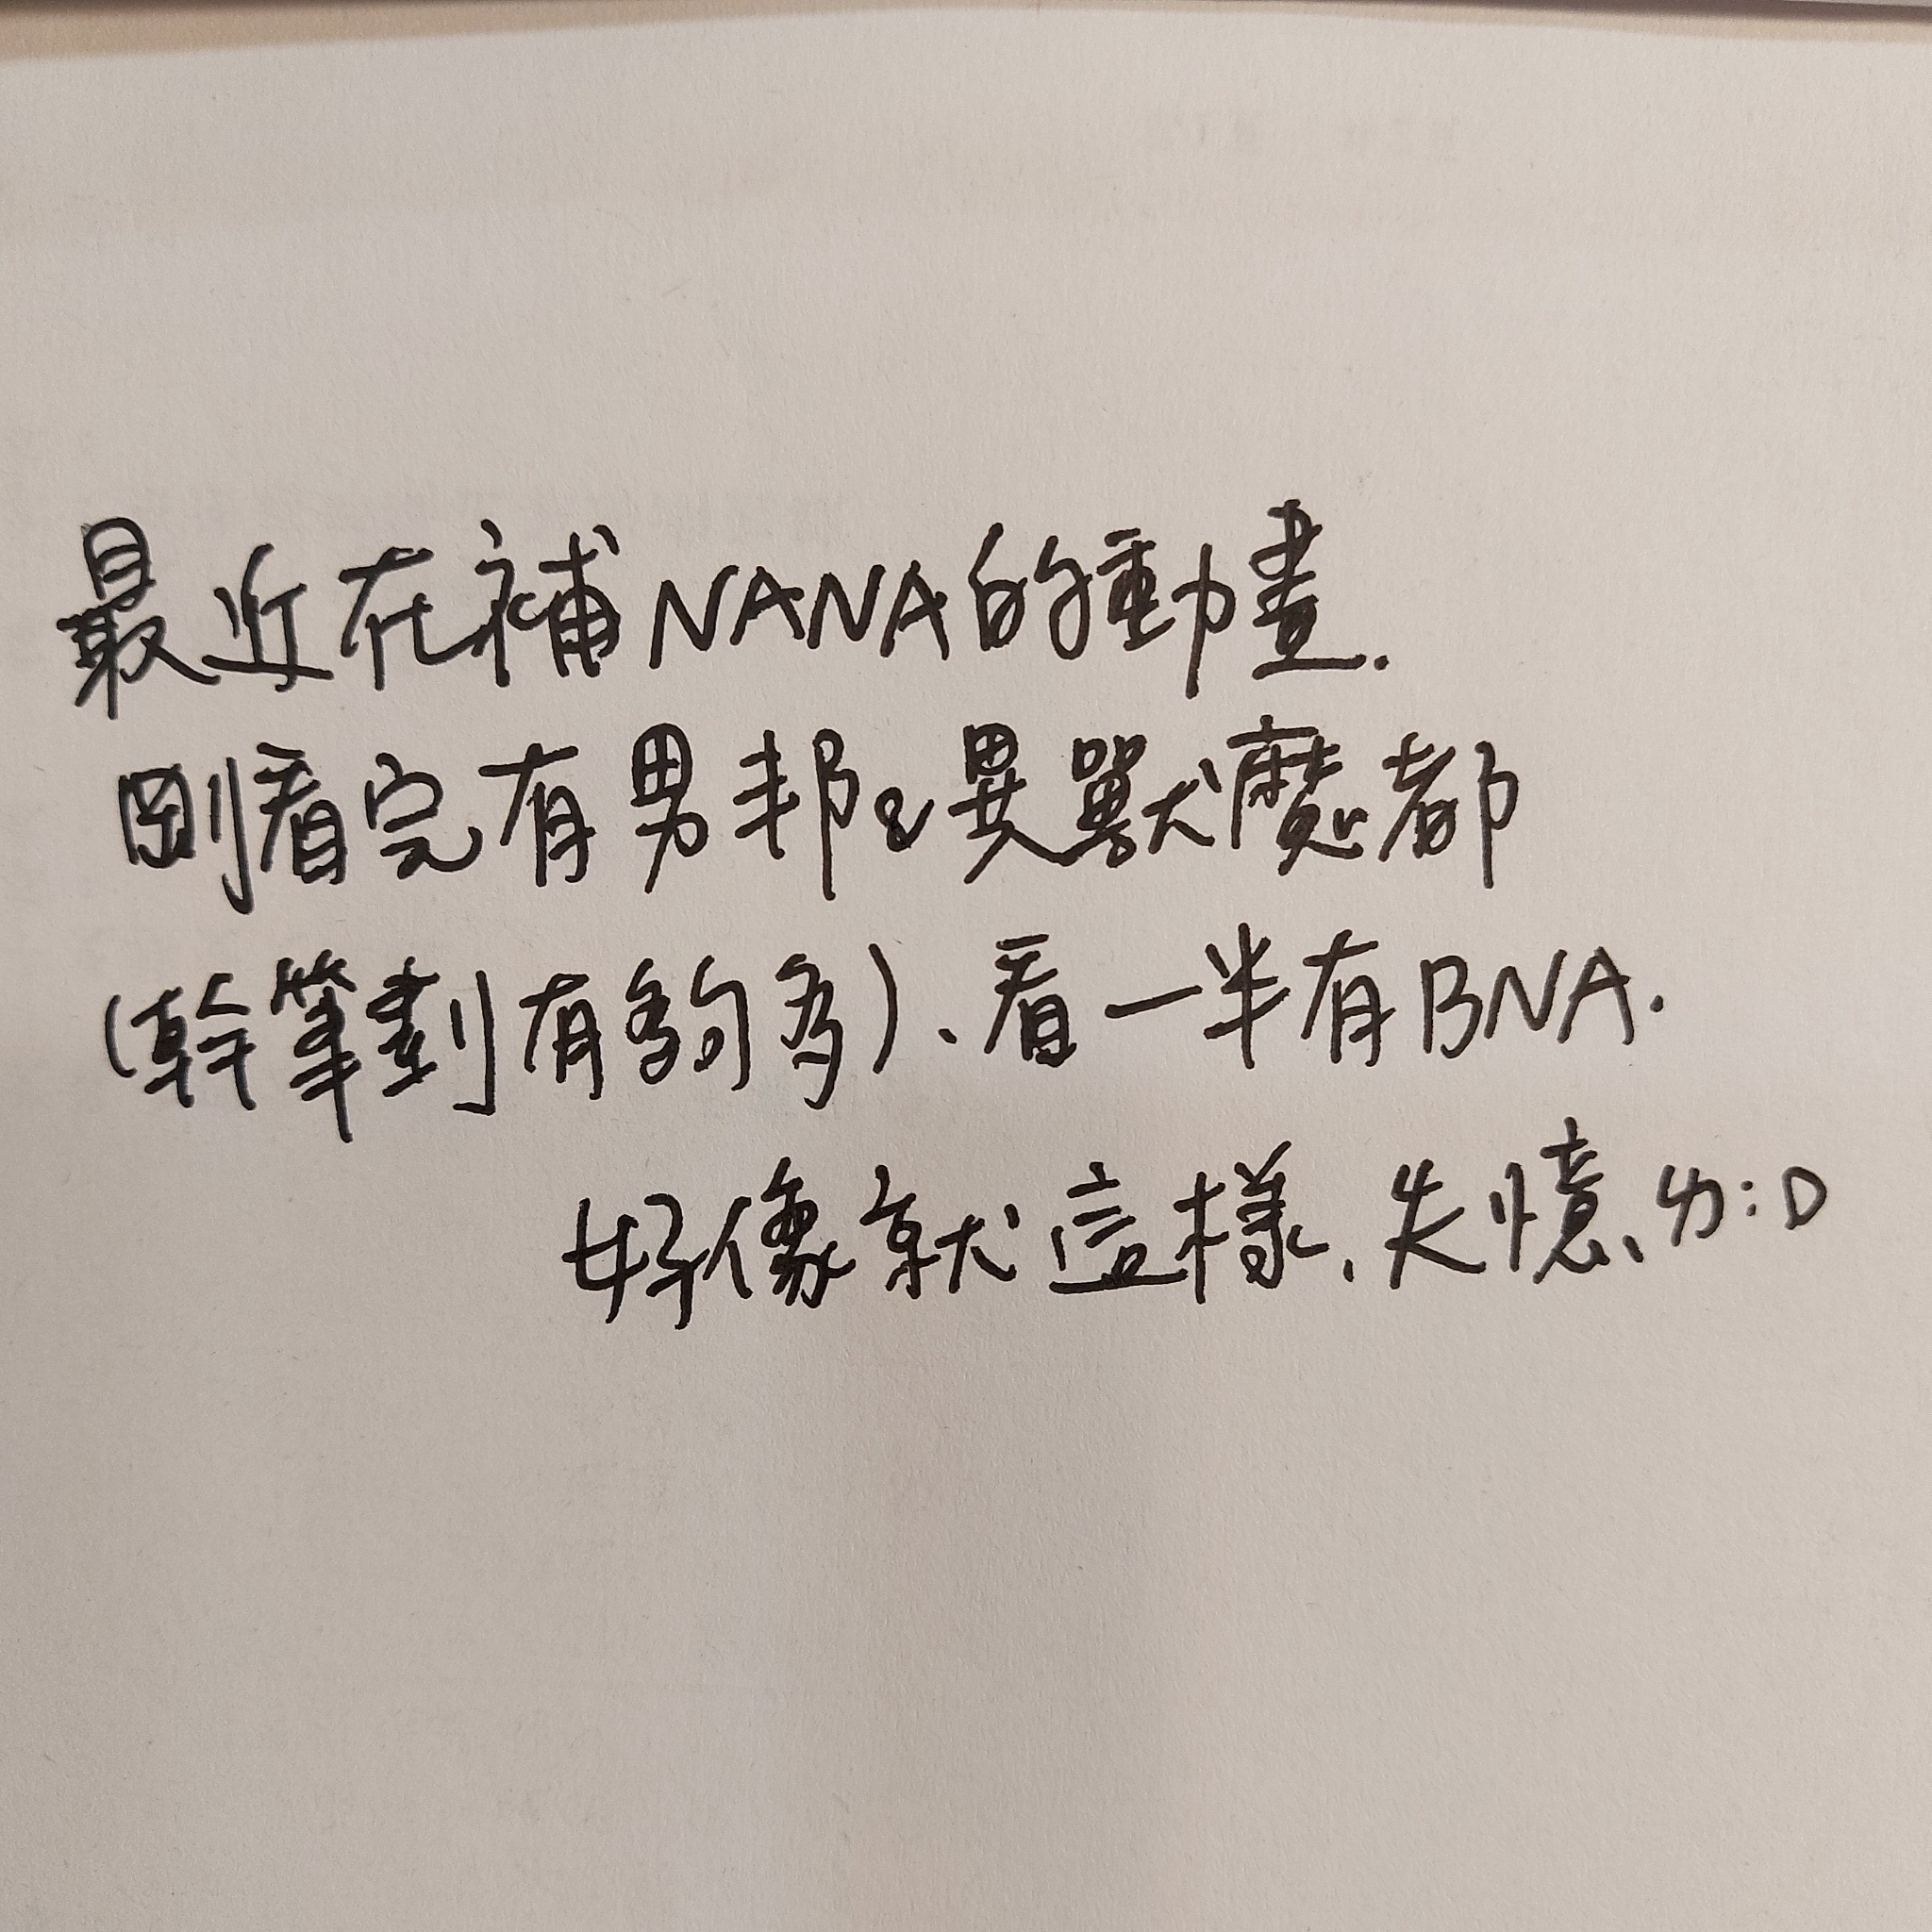 最近在補NANA的動畫.
剛看完有男邦&異獸魔都
(幹筆劃有夠多)、看一半有BNA.
好像就這樣,失憶、ㄌ:D